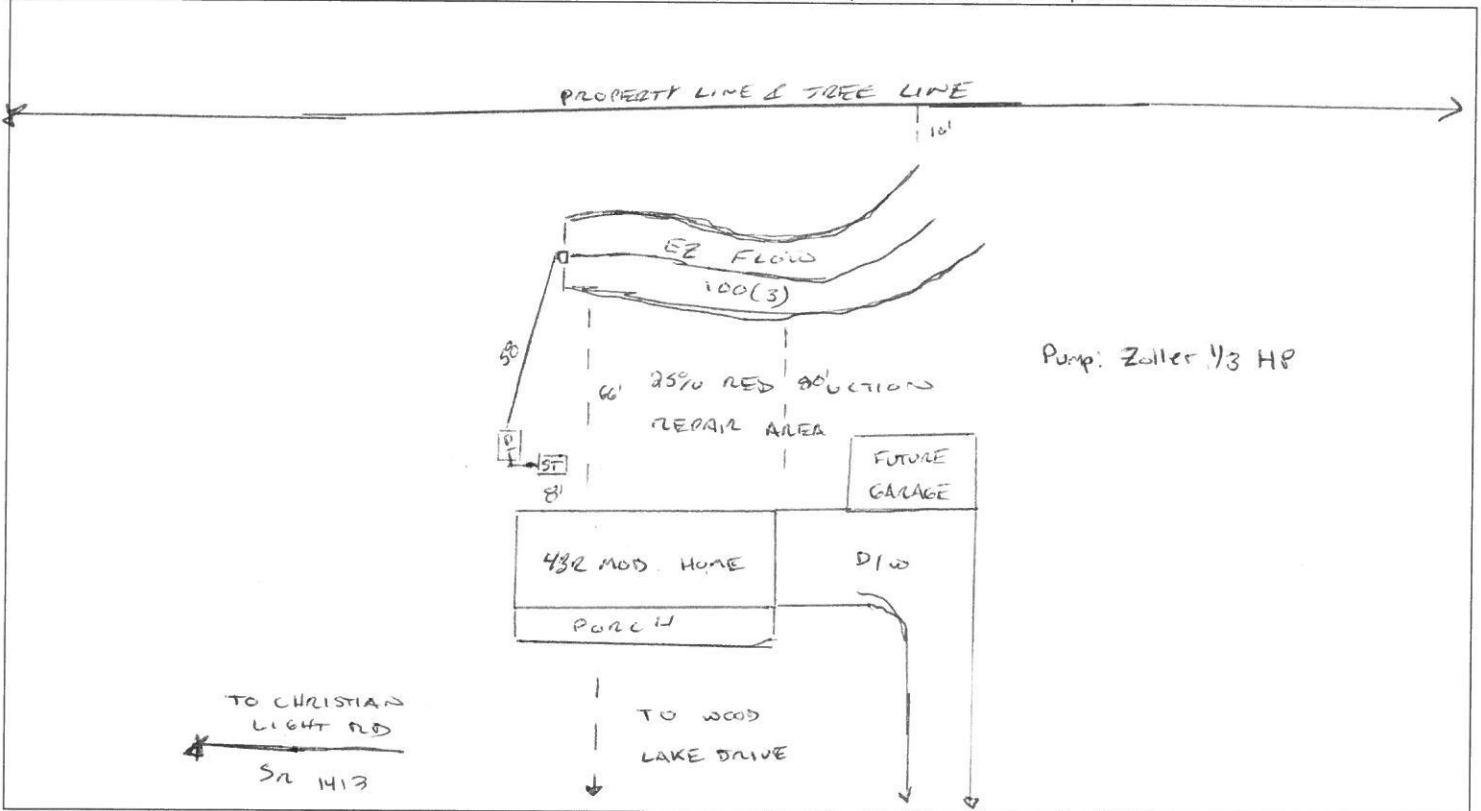 PROPERTY LINE & TREE LINE
10'
EZ FLOW
100(3)
50
66'
25% RED 80' UCTION
REPAIR AREA
Pump: Zoller 1/3 HP
PT
ST
8'
FUTURE
GARAGE
4BR MOD. HOME
D/W
PORCH
TO CHRISTIAN
LIGHT RD
SR 1413
TO WOOD
LAKE DRIVE